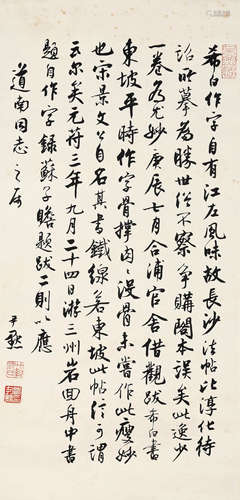 希白作字自有江左風味故長沙法帖比淳化待
詔所摹為勝世俗不察爭購閣本誤矣此逸少
一卷為尤妙庚辰七月合浦官舍借觀跋希白書
東坡平時作字骨撐肉肉沒骨未嘗作此瘦妙
也宋景文公自名其書鐵線若東坡此帖信可謂
云尔矣元符三年九月二十四日游三州岩回舟中書
題自作字錄蘇子瞻題跋二則以應
道南同志之屬
尹默